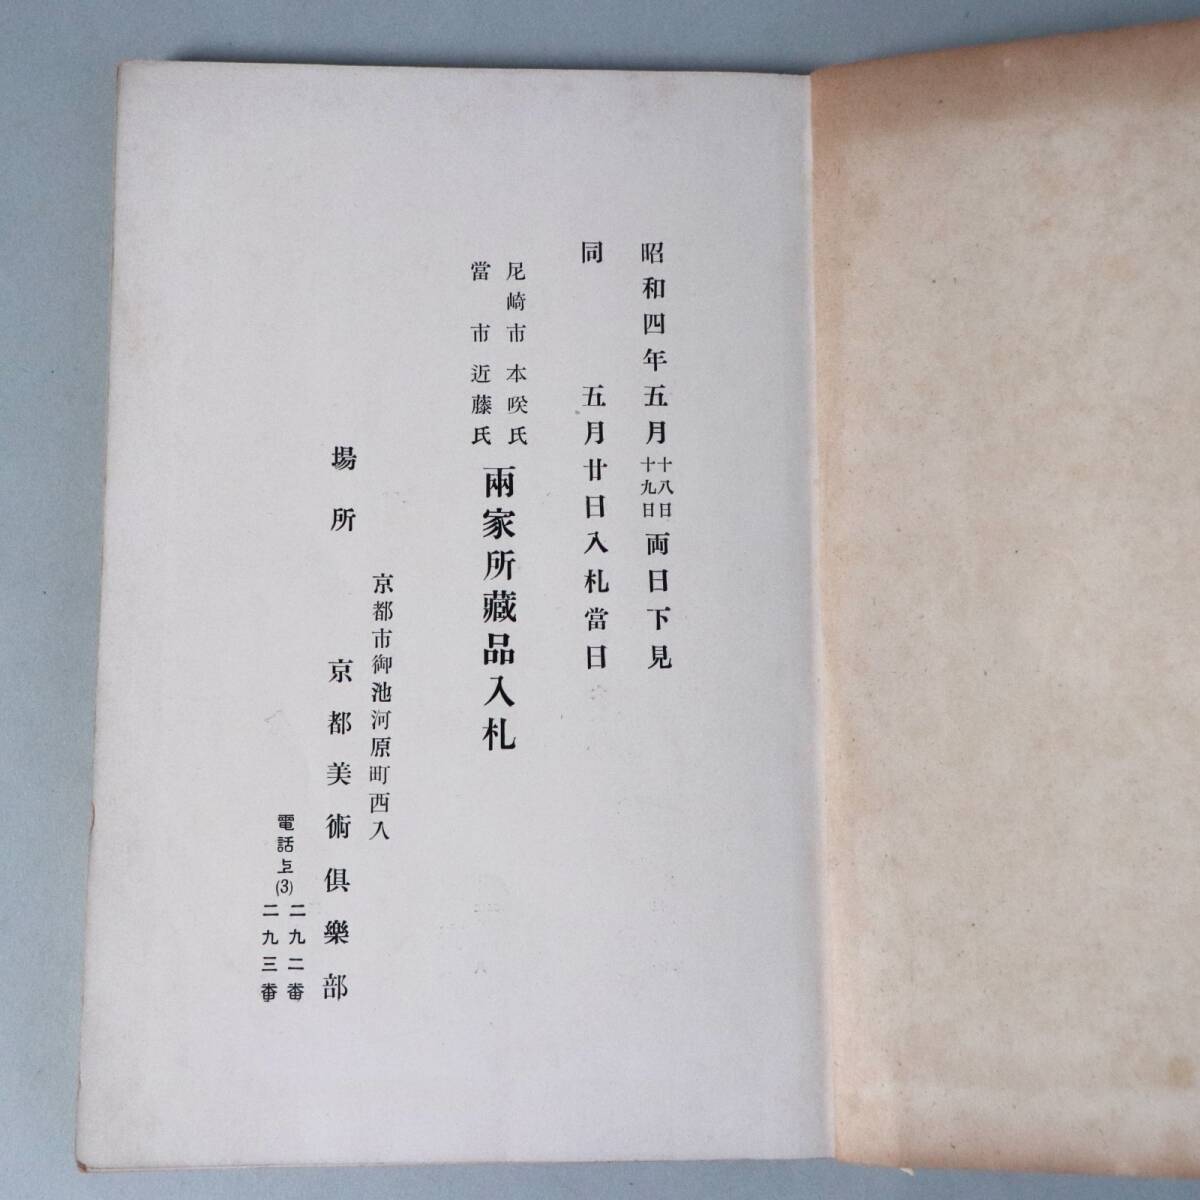 昭和四年五月十八日十九日両日下見
同 五月廿日入札當日
尼崎市 本咲氏
當市 近藤氏
兩家所藏品入札
京都市御池河原町西入
場所 京都美術倶樂部
電話上(3)二九二番
二九三番